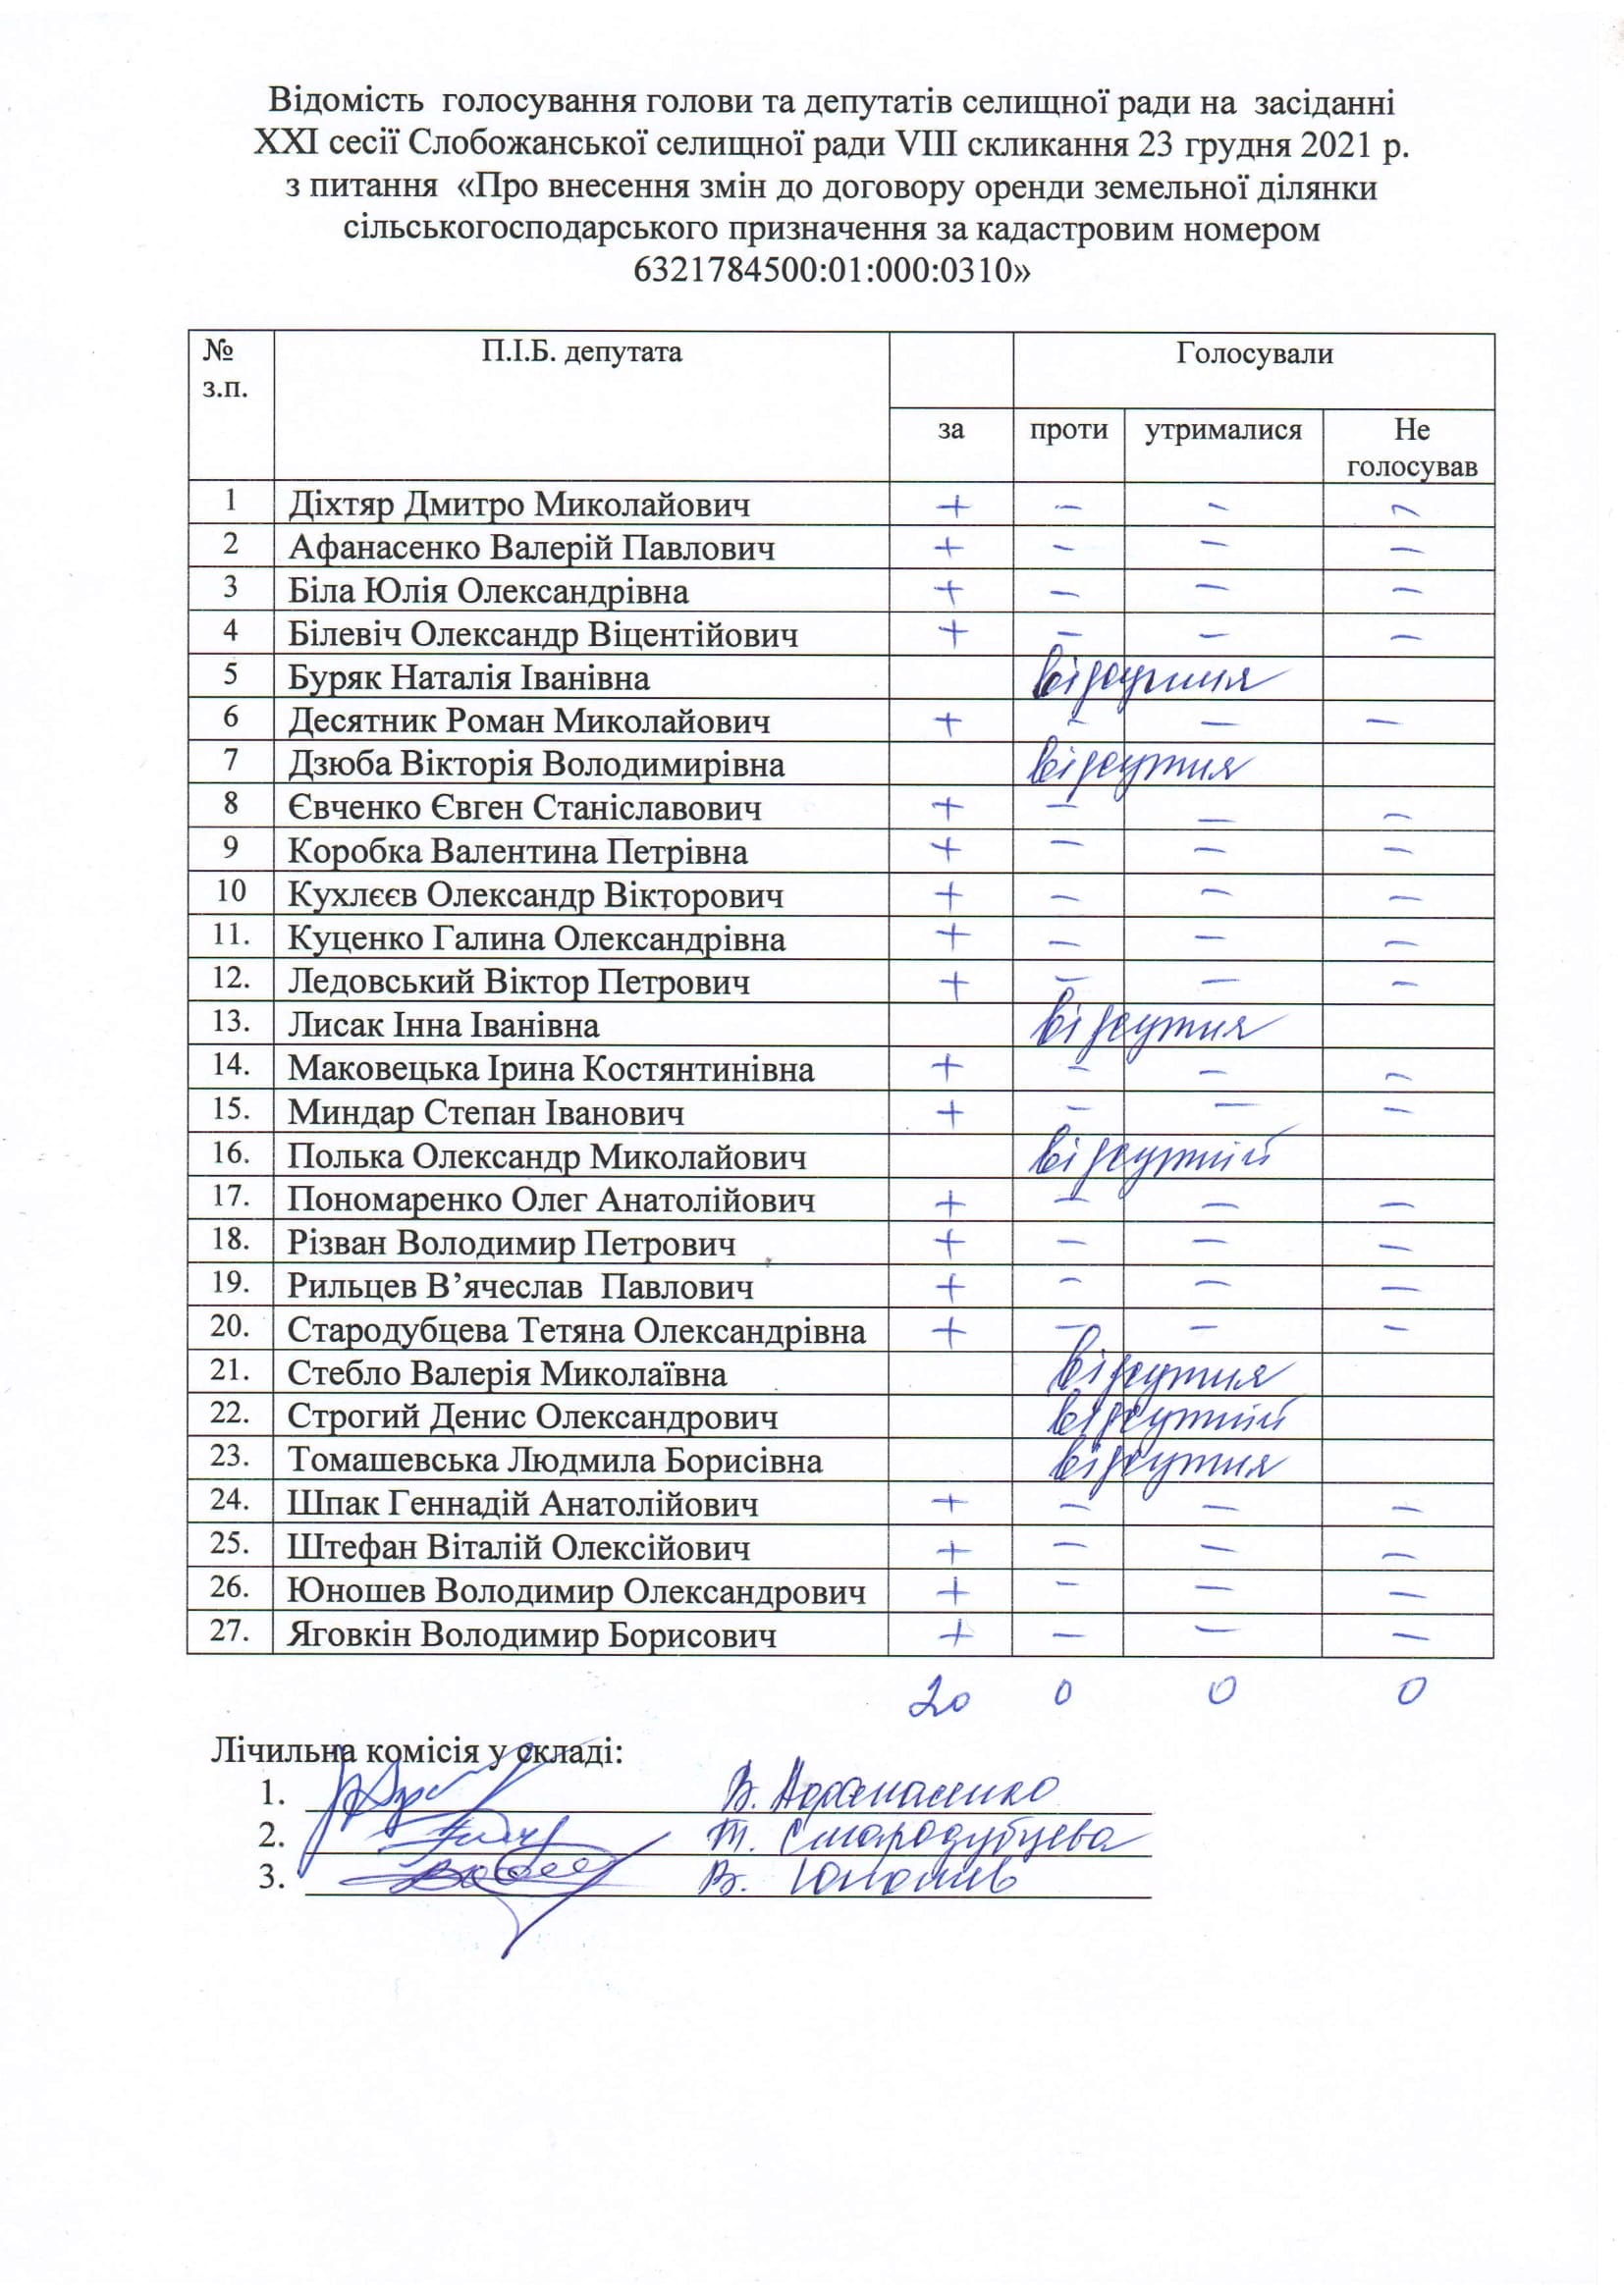 Відомість голосування голови та депутатів селищної ради на засіданні
XXI сесії Слобожанської селищної ради VIII скликання 23 грудня 2021 р.
з питання «Про внесення змін до договору оренди земельної ділянки
сільськогосподарського призначення за кадастровим номером
6321784500:01:000:0310»
№ з.п. П.І.Б. депутата Голосували
за проти утрималися Не голосував
1 Діхтяр Дмитро Миколайович + – – –
2 Афанасенко Валерій Павлович + – – –
3 Біла Юлія Олександрівна + – – –
4 Білевіч Олександр Віцентійович + – – –
5 Буряк Наталія Іванівна відсутня
6 Десятник Роман Миколайович + – – –
7 Дзюба Вікторія Володимирівна відсутня
8 Євченко Євген Станіславович + – – –
9 Коробка Валентина Петрівна + – – –
10 Кухлєєв Олександр Вікторович + – – –
11. Куценко Галина Олександрівна + – – –
12. Ледовський Віктор Петрович + – – –
13. Лисак Інна Іванівна відсутня
14. Маковецька Ірина Костянтинівна + – – –
15. Миндар Степан Іванович + – – –
16. Полька Олександр Миколайович відсутній
17. Пономаренко Олег Анатолійович + – – –
18. Різван Володимир Петрович + – – –
19. Рильцев В’ячеслав Павлович + – – –
20. Стародубцева Тетяна Олександрівна + – – –
21. Стебло Валерія Миколаївна відсутня
22. Строгий Денис Олександрович відсутній
23. Томашевська Людмила Борисівна відсутня
24. Шпак Геннадій Анатолійович + – – –
25. Штефан Віталій Олексійович + – – –
26. Юношев Володимир Олександрович + – – –
27. Яговкін Володимир Борисович + – – –
20 0 0 0
Лічильна комісія у складі:
1. В. Афанасенко
2. Т. Стародубцева
3. В. Юношев